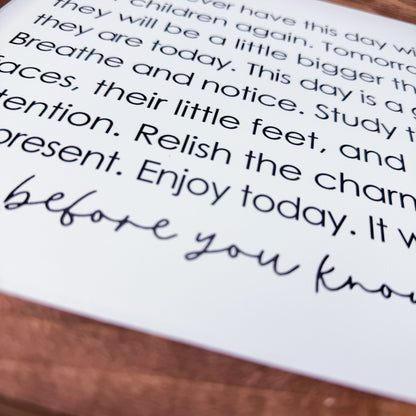 ever have this day w
children again. Tomorro
they will be a little bigger th
they are today. This day is a g
Breathe and notice. Study t
faces, their little feet, and
tention. Relish the charm
present. Enjoy today. It w
before you know